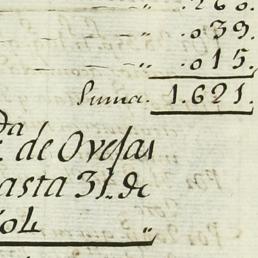 .260.
„ .039.
„ .015.
Suma. 1.621.
da
de Ovejas
asta 31. de
04 „